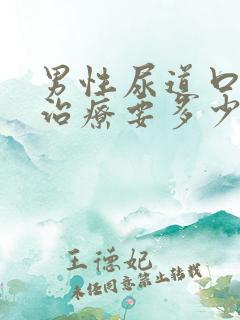 男性尿道口
治疗要多少
王德妃
未经同意禁止转载